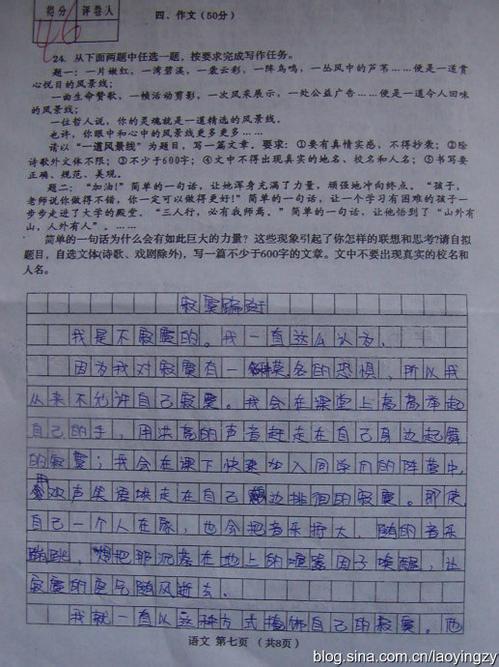 得分 评卷人
46
四、作文(50分)
24. 从下面两题中任选一题，按要求完成写作任务。
题一：一片嫩红，一湾碧溪，一袭云彩，一阵鸟鸣，一丛风中的芦苇……便是一道赏
心悦目的风景线；
一曲生命赞歌，一帧活动剪影，一次风采展示，一处公益广告……便是一道令人回味
的风景线；
一位哲人说，你的灵魂就是一道精选的风景线。
也许，你眼中和心中的风景线更多更多……
请以“一道风景线”为题目，写一篇文章。要求：①要有真情实感，不得抄袭；②除
诗歌外文体不限；③不少于600字；④文中不得出现真实的地名、校名和人名；⑤书写要
正确、规范、美观。
题二：“加油！”简单的一句话，让她浑身充满了力量，顽强地冲向终点。“孩子，
老师说你做得不错，你一定可以做得更好！”简单的一句话，让一个学习有困难的孩子一
步步走进了大学的殿堂。“三人行，必有我师焉。”简单的一句话，让他悟到了“山外有
山，人外有人”。……
简单的一句话为什么会有如此巨大的力量？这些现象引起了你怎样的联想和思考？请自拟
题目，自选文体(诗歌、戏剧除外)，写一篇不少于600字的文章。文中不要出现真实的校名和
人名。
寂寞
我是不寂寞的。我一直这么认为。
因为我对寂寞有一 莫名的恐惧，所以我
从来不允许自己寂寞。我会在课堂上高高举起
自己的手，用洪亮的声音赶走在自己身边起舞
的寂寞；我会在课下快速加入同学们的阵营中，
用欢声笑语 走在自己 边徘徊的寂寞。即使
自己一个人在家，也会把音乐挢大，随的音乐
蹦跳，把那沉落在地上的喧嚣因子唤醒，让
寂寞的 气随风逝去。
我就一直以这种方式掩饰自己的寂寞。
语文 第七页 （共8页）
blog.sina.com.cn/laoyingzy